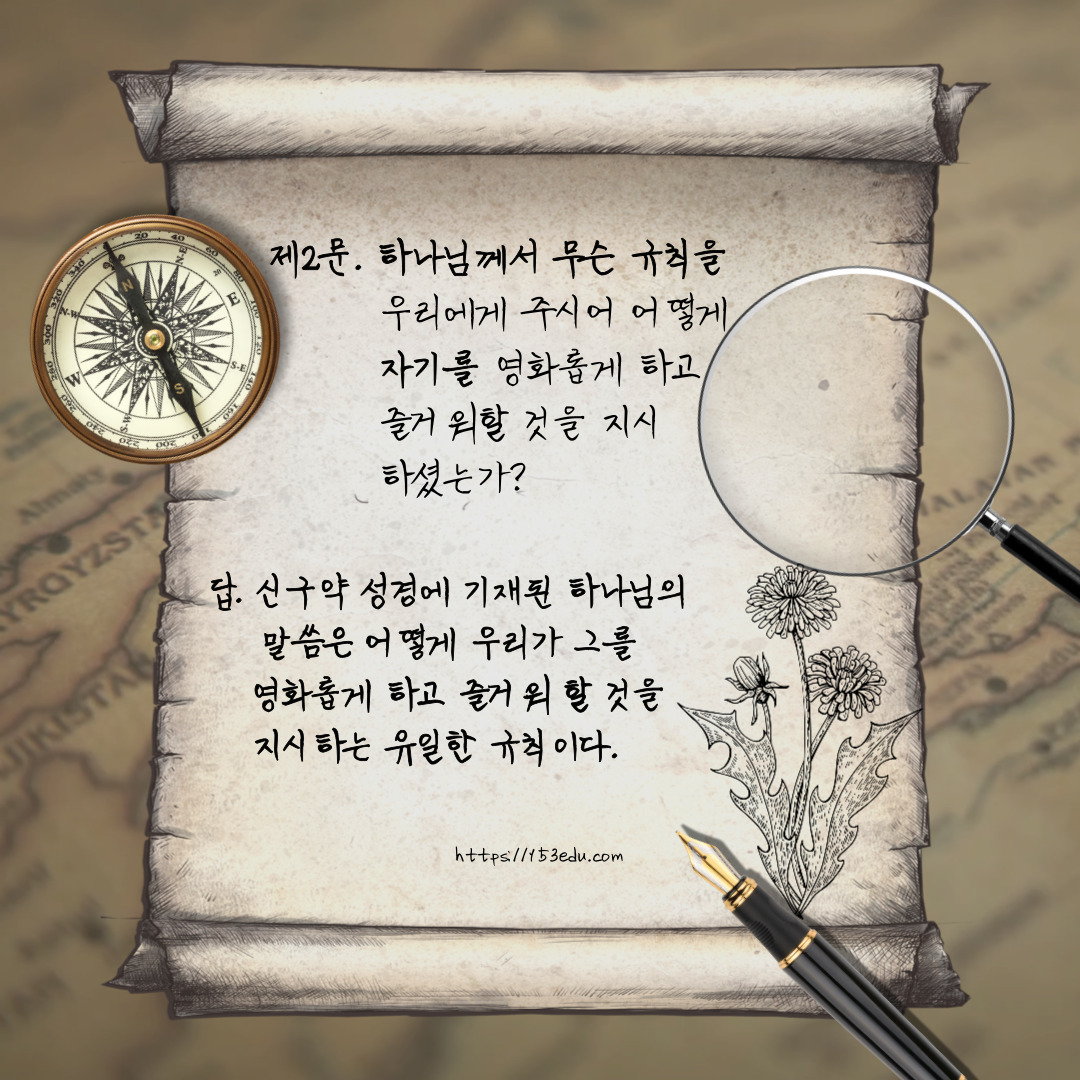 제2문. 하나님께서 무슨 규칙을
우리에게 주시어 어떻게
자기를 영화롭게 하고
즐거워할 것을 지시
하셨는가?
답. 신구약 성경에 기재된 하나님의
말씀은 어떻게 우리가 그를
영화롭게 하고 즐거워 할 것을
지시하는 유일한 규칙이다.
https://153edu.com
Almaty
N
E
S
W
N-E
S-E
N-W
20
40
60
80
340
320
300
260
240
220
200